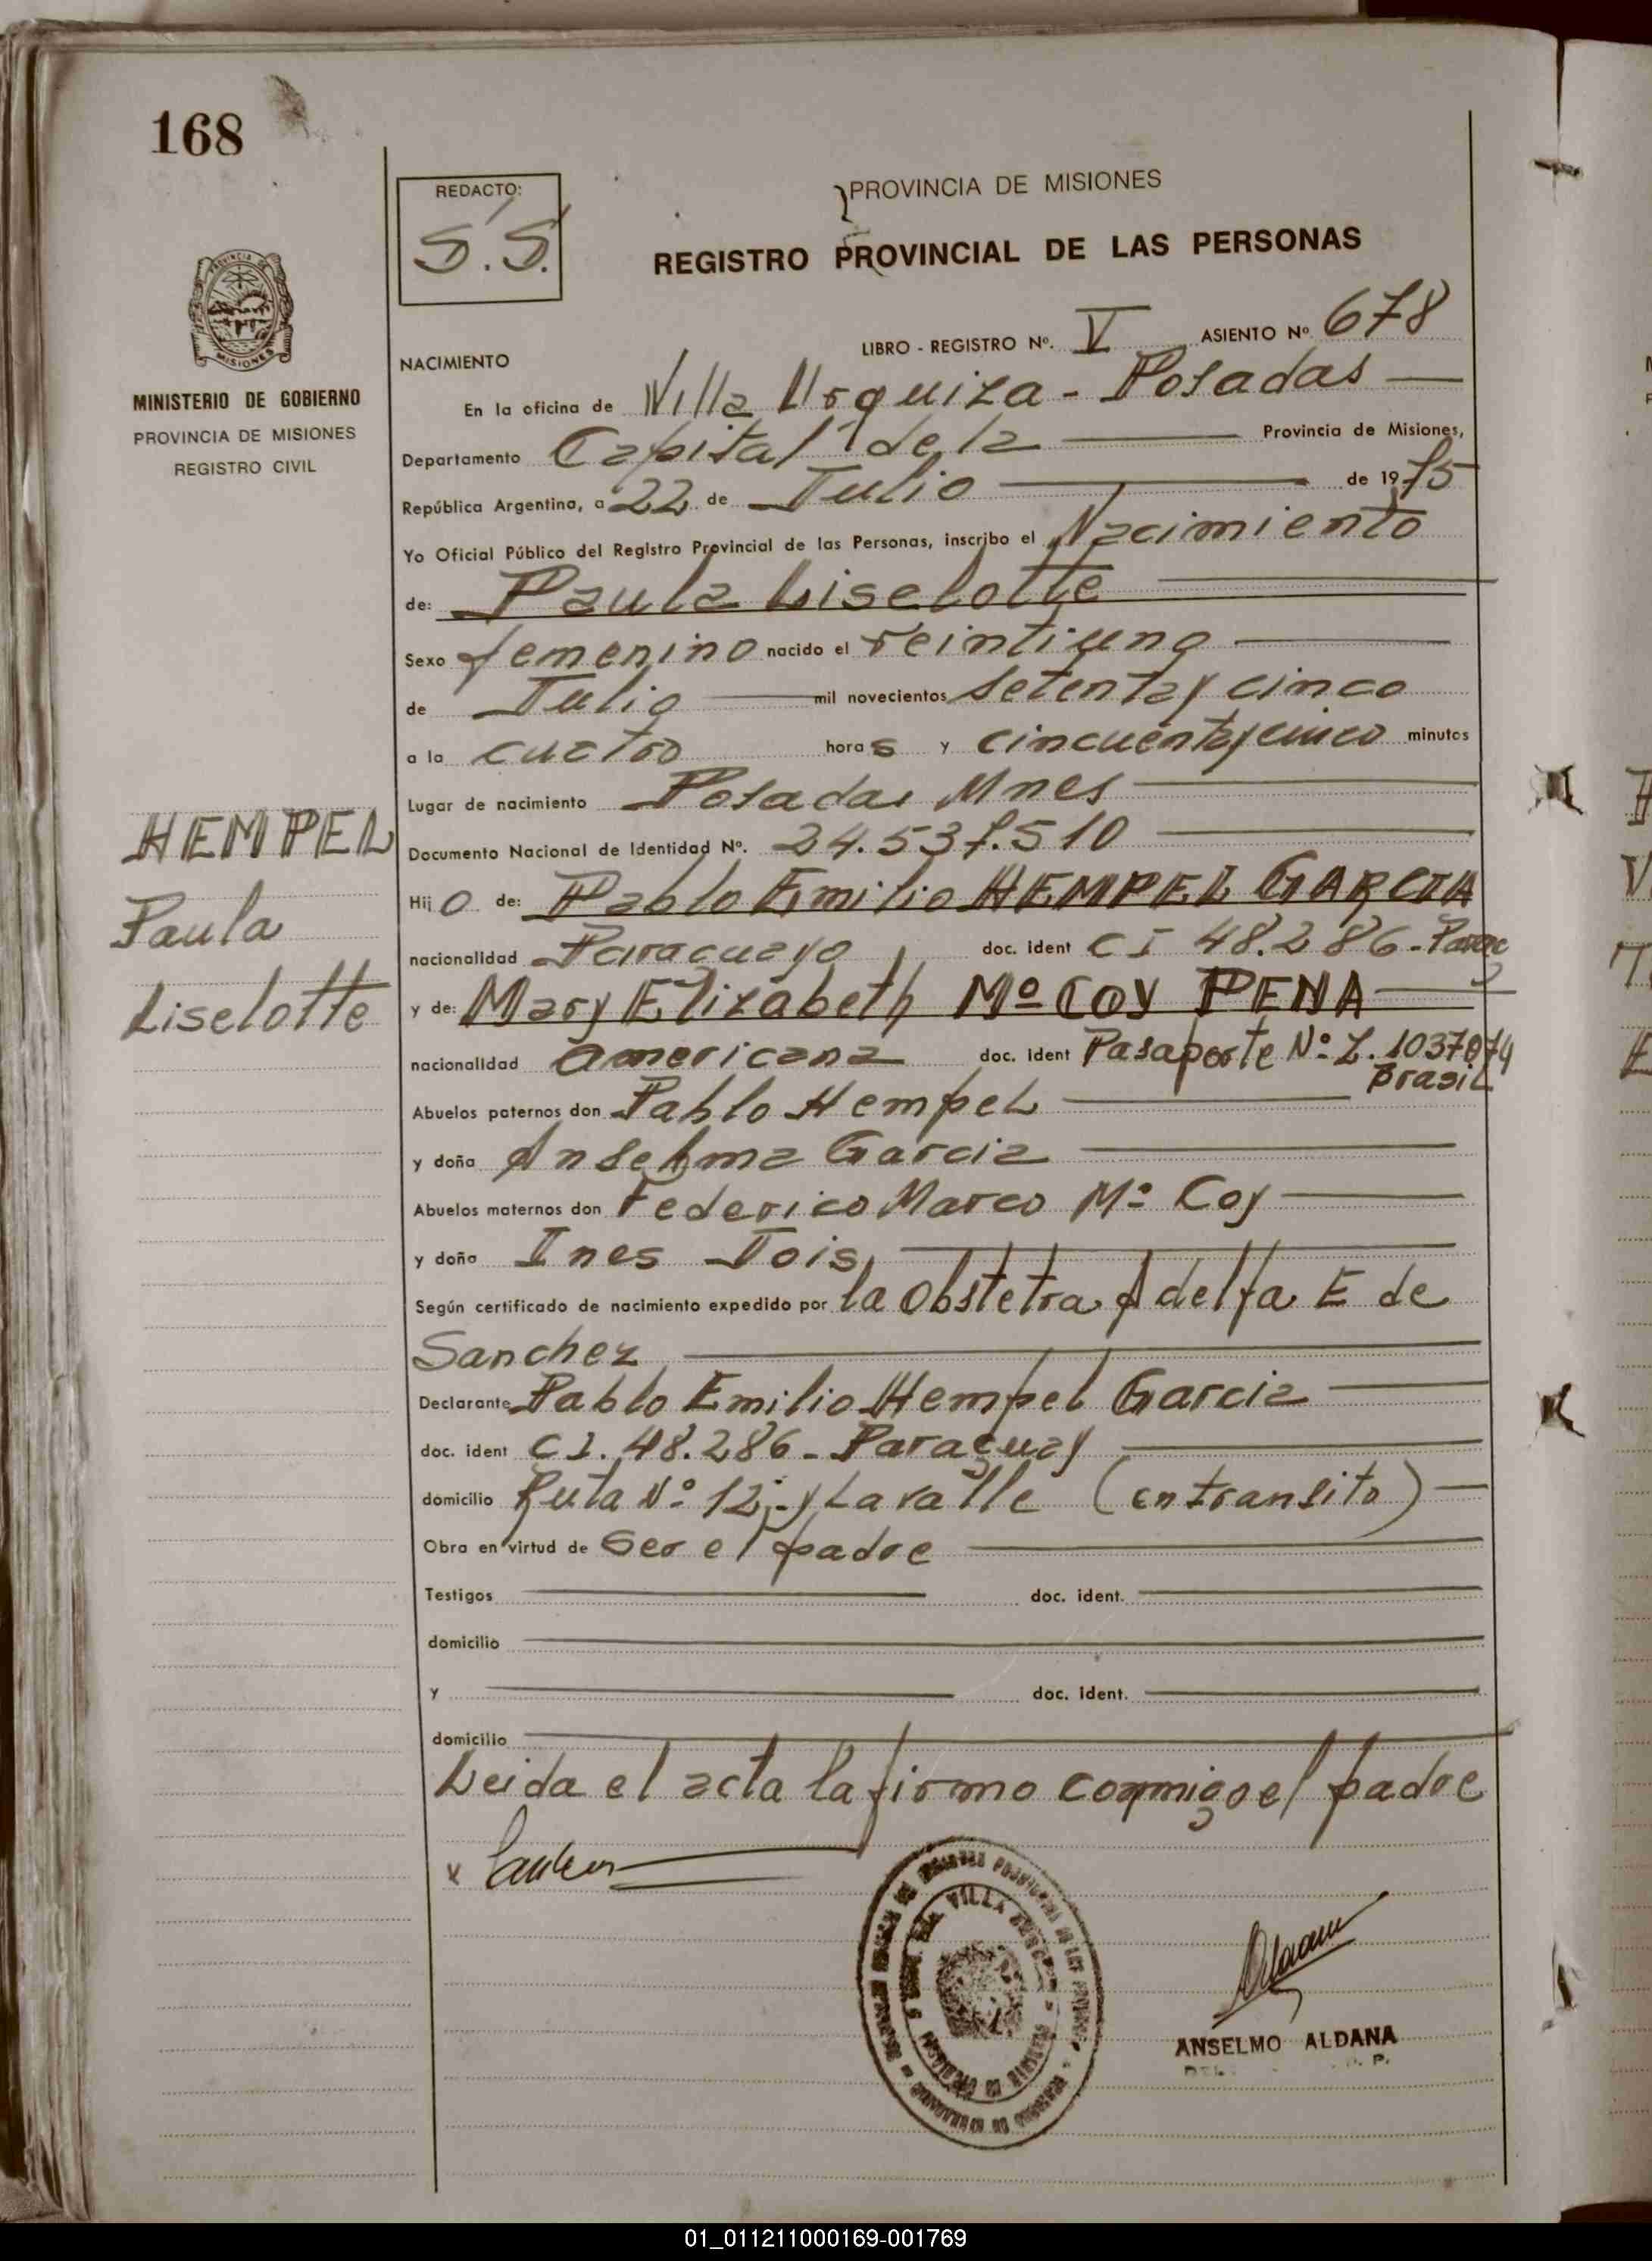 168
REDACTO:
S.S.
PROVINCIA DE MISIONES
REGISTRO PROVINCIAL DE LAS PERSONAS
MISIONES
MINISTERIO DE GOBIERNO
PROVINCIA DE MISIONES
REGISTRO CIVIL
LIBRO - REGISTRO Nº. V ASIENTO Nº 678
NACIMIENTO
En la oficina de Villa Urquiza - Posadas
Departamento Capital de la Provincia de Misiones,
República Argentina, a 22 de Julio de 1975
Yo Oficial Público del Registro Provincial de las Personas, inscribo el Nacimiento
de: Paula Liselotte
Sexo femenino nacido el veintiuno
de Julio mil novecientos setenta y cinco
a la cuatro horas y cincuenta y cinco minutos
Lugar de nacimiento Posadas Mnes
Documento Nacional de Identidad Nº. 24.537.510
HEMPEL
Paula
Liselotte
Hijo de: Pablo Emilio HEMPEL GARCIA
nacionalidad Paraguayo doc. ident CI 48.286 - Parag
y de: Mary Elizabeth Mº COY PENA
nacionalidad americana doc. ident Pasaporte Nº Z. 1037074
Brasil
Abuelos paternos don Pablo Hempel
y doña Anselma Garcia
Abuelos maternos don Federico Marco Mº Coy
y doña Ines Jois
Según certificado de nacimiento expedido por la Obstetra Adelfa E de
Sanchez
Declarante Pablo Emilio Hempel Garcia
doc. ident CI. 48.286 - Paraguay
domicilio Ruta Nº 12 - y Lavalle (en transito)
Obra en virtud de ser el padre
Testigos doc. ident.
domicilio
y doc. ident.
domicilio
Leida el acta la firmo conmigo el padre
VILLA
ANSELMO ALDANA
01_011211000169-001769